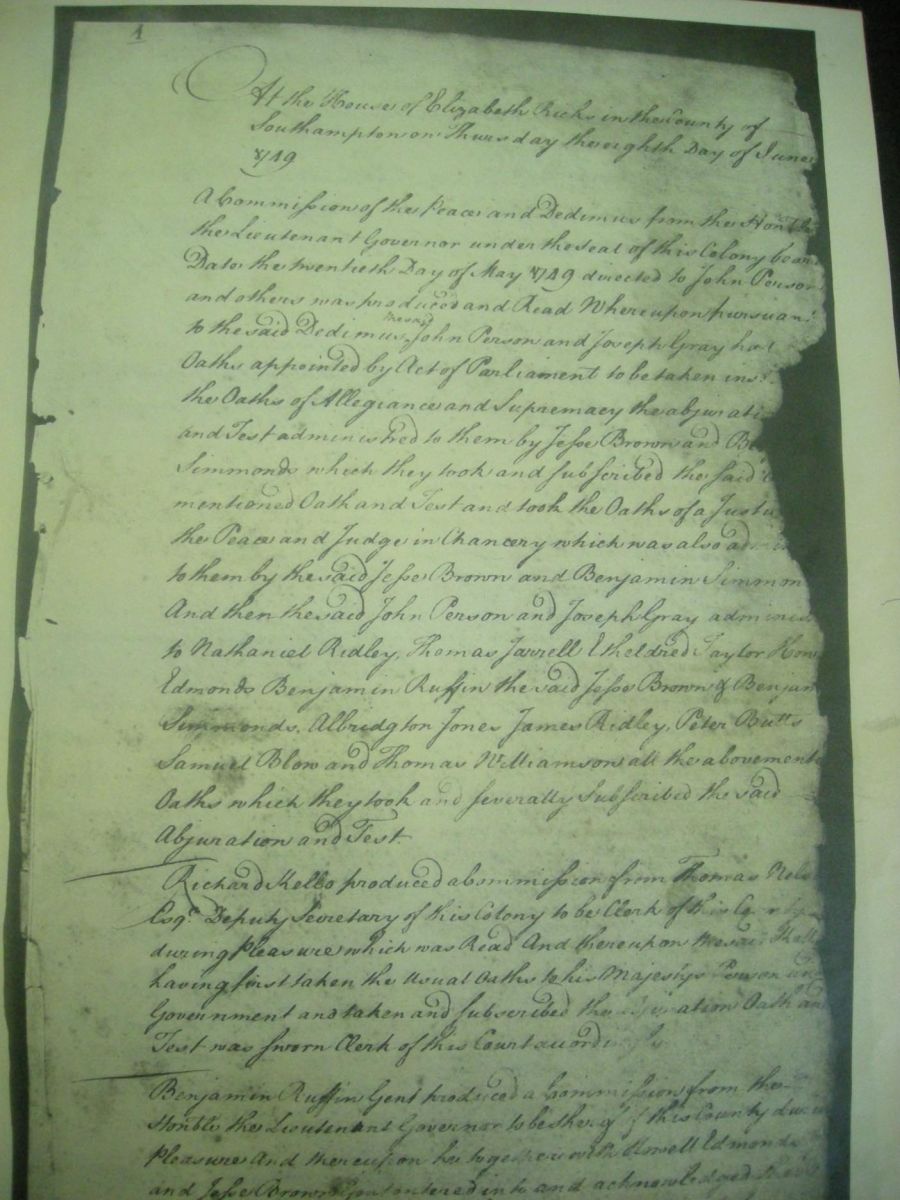 1
At the House of Elizabeth Ricks in the County of
Southampton on Thursday the eighth Day of June
1749
A Commission of the Peace and Dedimus from the Honble
the Lieutenant Governor under the seal of this Colony bear
Date the twentieth Day of May 1749 directed to John Person
and others was produced and Read Whereupon pursuan
to the said Dedimus the said John Person and Joseph Gray had
Oaths appointed by Act of Parliament to be taken ins
the Oaths of Allegiance and Supremacy the abjurati
and Test administred to them by Jesse Brown and Be
Simmonds which they took and subscribed the said
mentioned Oath and Test and took the Oaths of a Justi
the Peace and Judge in Chancery which was also admin
to them by the said Jesse Brown and Benjamin Simmon
And then the said John Person and Joseph Gray adminis
to Nathaniel Ridley, Thomas Jarrell Etheldred Taylor How
Edmonds Benjamin Ruffin the said Jesse Brown & Benjam
Simmonds, Albridgton Jones James Ridley, Peter Butts
Samuel Blow and Thomas Williamson all the abovement
Oaths which they took and severally Subscribed the said
Abjuration and Test.
Richard Kello produced a Commission from Thomas Nels
Esqr. Deputy Secretary of this Colony to be Clerk of this County
during Pleasure which was Read And thereupon the said
having first taken the Usual Oaths to his Majestys Person and
Government and taken and subscribed the abjuration Oath and
Test was sworn Clerk of this Court accordingly
Benjamin Ruffin Gent produced a Commission from the
Honble the Lieutenant Governor to be sherif of this County during
Pleasure And thereupon he together with Howell Edmonds
and Jesse Brown Gent entered into and acknowledged